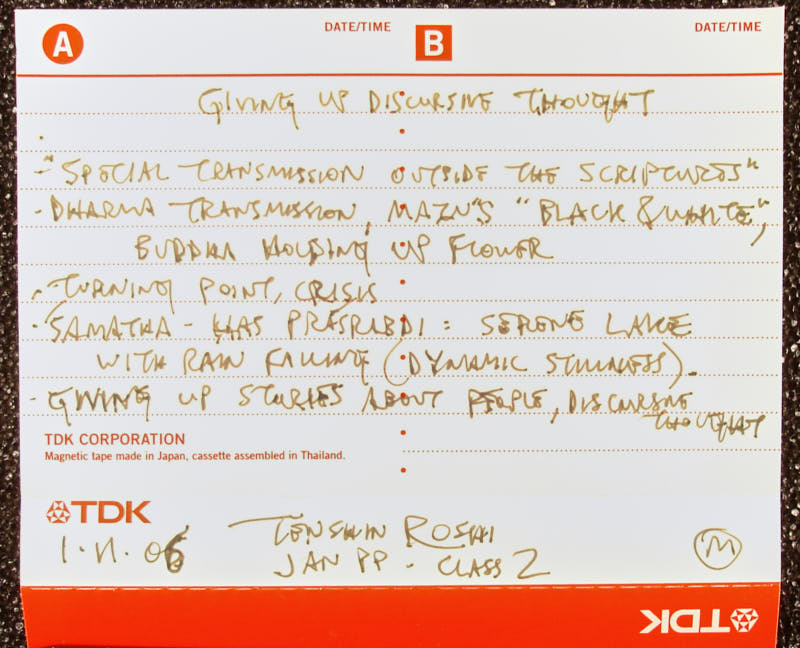 A DATE/TIME B DATE/TIME
GIVING UP DISCURSIVE THOUGHT
- "SPECIAL TRANSMISSION OUTSIDE THE SCRIPTURES"
- DHARMA TRANSMISSION, MAZU'S "BLACK & WHITE",
BUDDHA HOLDING UP FLOWER
- TURNING POINT, CRISIS
- SAMATHA - HAS PRASRABDI = SERENE LAKE
WITH RAIN FALLING (DYNAMIC STILLNESS).
- GIVING UP STORIES ABOUT PEOPLE, DISCURSIVE
THOUGHT
TDK CORPORATION
Magnetic tape made in Japan, cassette assembled in Thailand.
TDK
1.11.06 TENSHIN ROSHI
JAN PP - CLASS 2 M
TDK